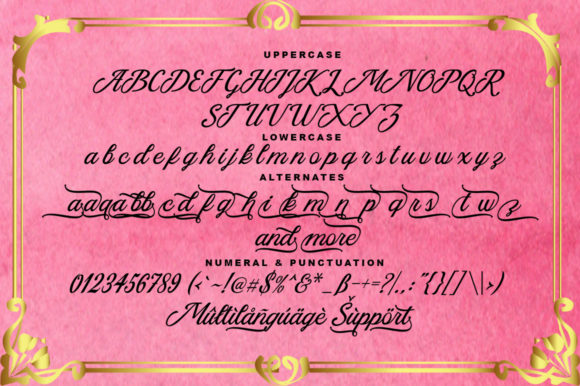 UPPERCASE
ABCDEFGHIJKLMNOPQR
STUVWXYZ
LOWERCASE
abcdefghijklmnopqrstuvwxyz
ALTERNATES
and more
NUMERAL & PUNCTUATION
0123456789 (<`~!@#$%^&*_ß-+=?/.,:"{}[]\|>)
Múltìlåñgúägè Šüppört